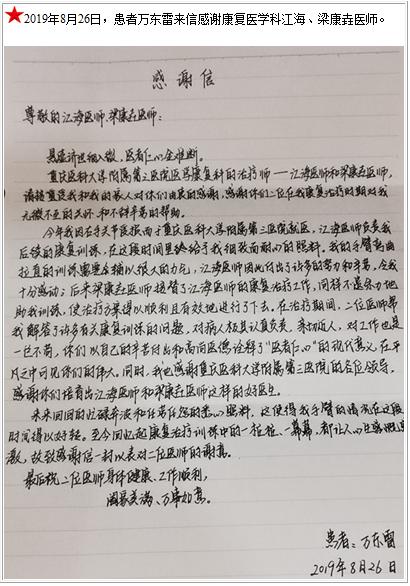 ★2019年8月26日，患者万东雷来信感谢康复医学科江海、梁康垚医师。
感谢信
尊敬的江海医师、梁康垚医师：
悬壶济世细入微，医者仁心金难断。
重庆医科大学附属第三医院医院康复科的治疗师——江海医师和梁康垚医师，
请接受我和我的家人对你们由衷的感谢，感谢你们二位在我康复治疗时期对我
无微不至的关怀、和不辞辛苦的帮助。
今年我因右手关节医按而于重庆医科大学附属第三医院就医，江海医师负责我
后续的康复训练，在这段时间里始终给予我细致而耐心的照料。我的手臂弯曲
拉直的训练需要全辅以很大的力气，江海医师因此付出了许多的努力和辛苦，令我
十分感动；后来梁康垚医师接替了江海医师的康复治疗工作，同样不遗余力地
助我训练，使治疗方案得以顺利且有效地进行了下去。在治疗期间，二位医师帮
我解答了许多有关康复训练的问题，对病人极其认真负责、亲切近人，对工作也是
一丝不苟，你们以自己的辛苦付出和高尚医德诠释了“医者仁心”的现代意义，在平
凡之中可见你们的伟大。同时，我也感谢重庆医科大学附属第三医院的各位领导，
感谢你们培育出江海医师和梁康垚医师这样的好医生。
来来回回的忙碌奔波和任劳任怨的悉心照料，这使得我手臂的情况在这段
时间得以好转。至今回忆起康复治疗训练中的一桩桩、一幕幕，都让人心生感慨且感
激，故致感谢信一封以表对二位医师的谢意。
最后祝二位医师身体健康、工作顺利，
阖家美满、万事如意。
患者：万东雷
2019年8月26日